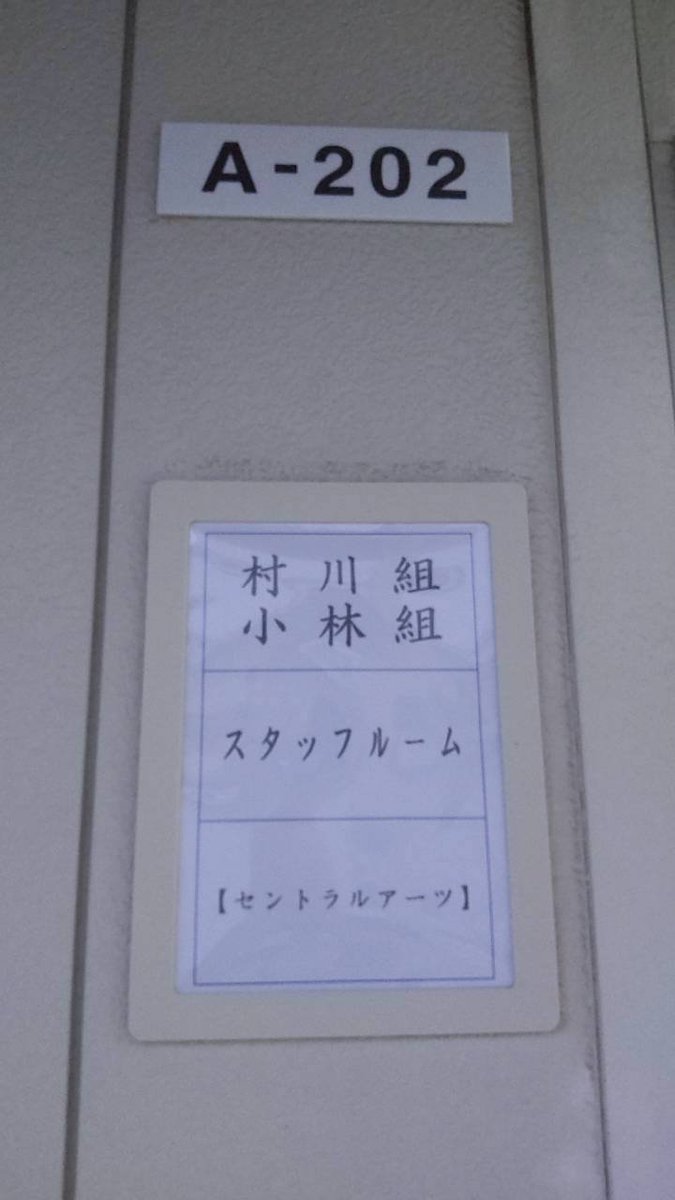 A-202
村川組
小林組
スタッフルーム
【セントラルアーツ】